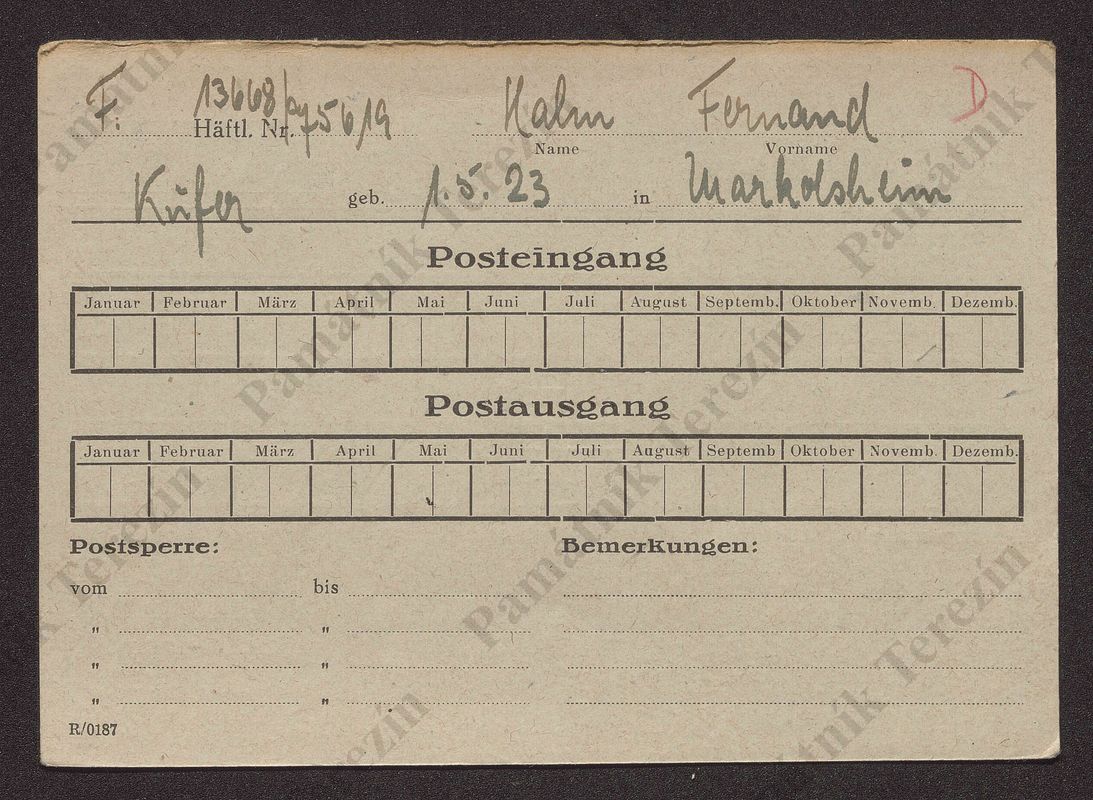 F. 13668/75619 Halm Fernand D
Häftl. Nr. Name Vorname
Küfer geb. 1.5.23 in Markolsheim
Posteingang
Januar Februar März April Mai Juni Juli August Septemb. Oktober Novemb. Dezemb.
Postausgang
Januar Februar März April Mai Juni Juli August Septemb Oktober Novemb. Dezemb.
Postsperre: Bemerkungen:
vom bis
" "
" "
" "
R/0187
Památník Terezín